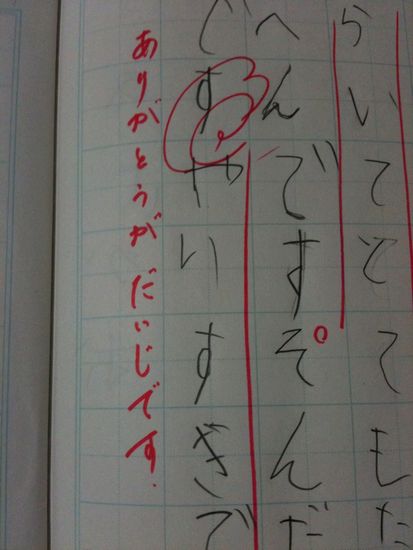 らいてとてもた
へんです。そんだ
ですやいすぎで
ありがとうがだいじです.